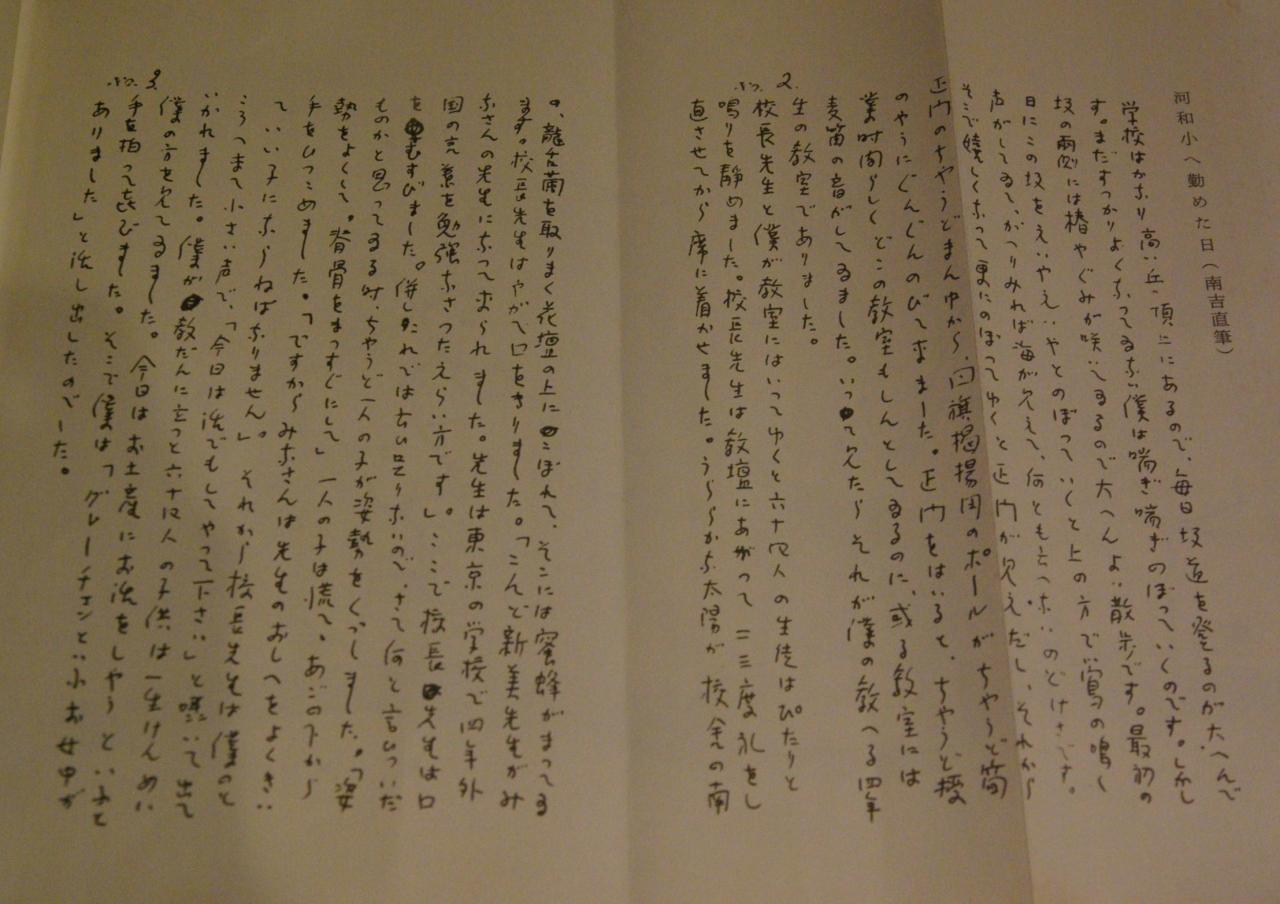 河和小へ勤めた日(南吉直筆)
学校はかなり高い丘の頂上にあるので、毎日坂道を登るのが大へんで
す。まだすっかりよくなってゐない僕は喘ぎ喘ぎのぼっていくのです。しかし
坂の両側には椿やぐみが咲いてゐるので大へんよい散歩です。最初の
日にこの坂をえいやえいやとのぼっていくと上の方で鶯の鳴く
声がしてゐて、がつりみれば海が見えて、何とも云へないのどけさです。
そこで嬉しくなって更にのぼってゆくと正門が見えだし、それから
正門のちやうどまん中から、国旗掲揚用のポールがちやうど筍
のやうにぐんぐんのびて来ました。正門をはいると、ちやうど授
業時間らしくどこの教室もしんとしてゐるのに、或る教室には
麦笛の音がしてゐました。いって見たらそれが僕の教へる四年
生の教室でありました。
校長先生と僕が教室にはいってゆくと六十四人の生徒はぴたりと
鳴りを静めました。校長先生は教壇にあがって二三度礼をし
直させてから席に着かせました。うららかな太陽が、校舎の南
No. 2.
の、龍舌蘭を取りまく花壇の上にこぼれて、そこには蜜蜂がまってゐ
ます。校長先生はやがて口をきりました。「こんど新美先生がみ
なさんの先生になって来られました。先生は東京の学校で四年外
国の言葉を勉強なさったえらい方です。」ここで校長先生は口
をむすびました。併しこれでは物足りないので、さて何と言ひついだ
ものかと思ってゐる時、ちやうど一人の子が姿勢をくづしました。「姿
勢をよくして。脊骨をまっすぐにして」一人の子は慌てゝあごの下から
手をひっこめました。「ですからみなさんは先生のおしへをよくきい
て、いい子にならねばなりません。」それから校長先生は僕のと
ころへ来て小さい声で、「今日は話でもしてやって下さい」と囁いて出て
いかれました。僕が教だんに立つと六十四人の子供は一生けんめい
僕の方を見てゐました。今日はお土産にお話をしやうといふと
手を拍って喜びました。そこで僕は「グレーチェンといふお女中が
ありました」と話し出したのでした。
No. 3.